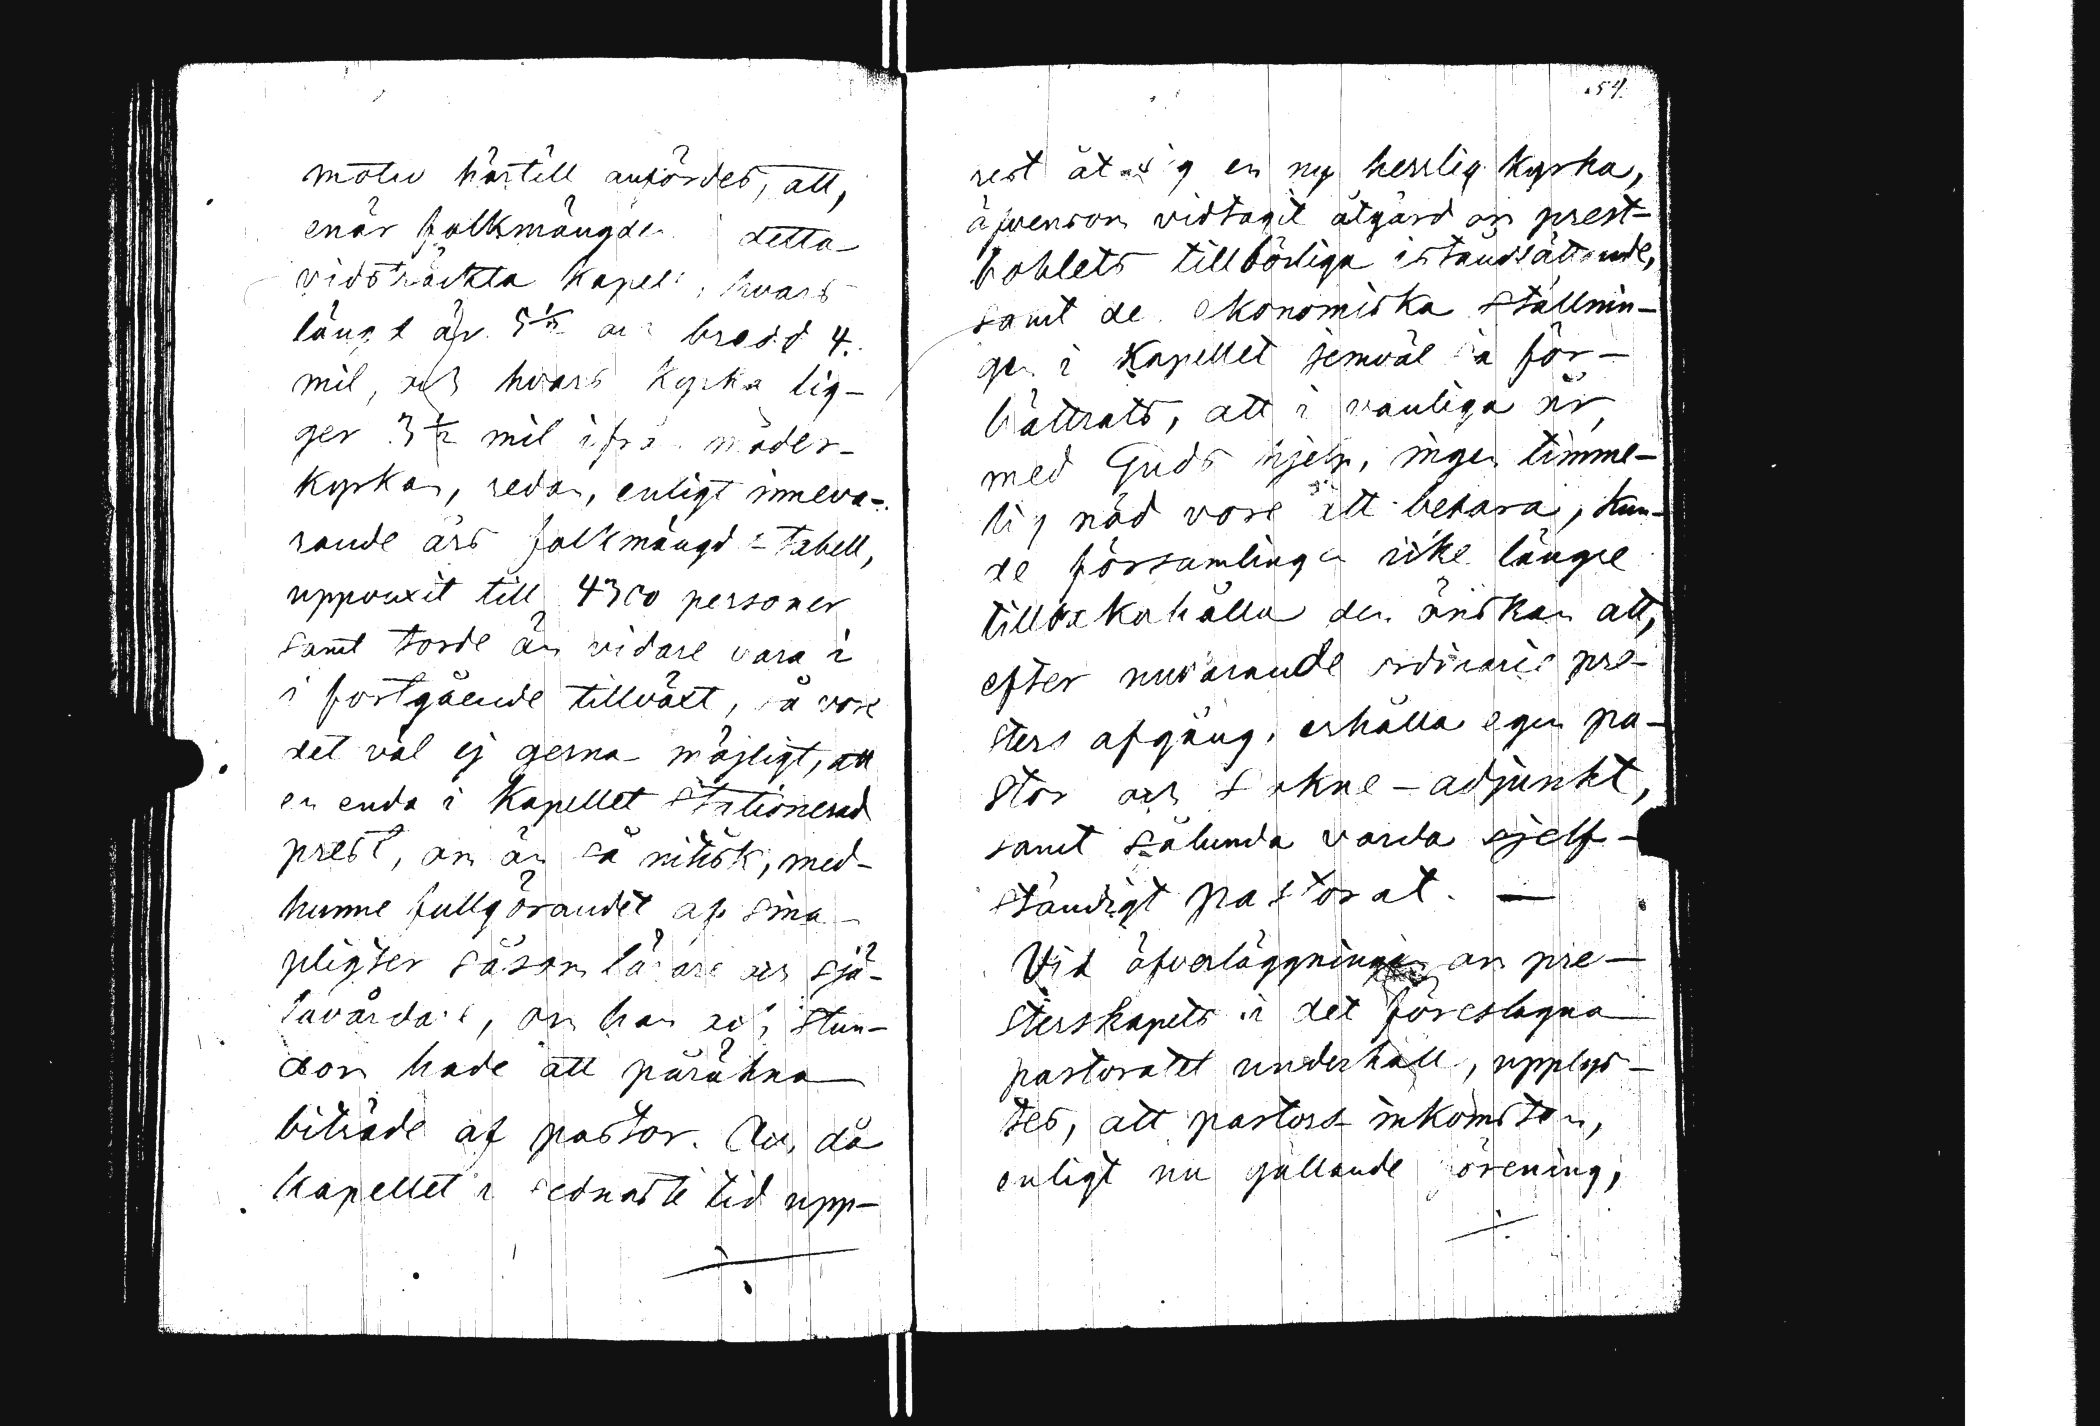 motiv härtill anfördes, att,
enär folkmängden i detta
vidsträckta kapell, hvars
längd är 5 1/2 och bredd 4.
mil, och hvars kyrka lig-
ger 3 1/2 mil ifrån moder-
kyrkan, redan, enligt inneva-
rande års folkmängds-tabell,
uppvuxit till 4300 personer
samt torde än vidare vara i
i fortgående tillväxt, så vore
det väl ej gerna möjligt, att
en enda i Kapellet stationerad
prest, om än så nitisk, med-
hunne fullgörandet af sina
pligter såsom lärare och sjä-
lavårdare, om han ock stun-
dom hade att påräkna
biträde af pastor. Och då
Kapellet i sednaste tid upp-
54.
rest åt sig en ny herrlig kyrka,
äfvensom vidtagit åtgärd om prest-
bohlets tillbörliga iståndsättande,
samt de ekonomiska ställnin-
gen i Kapellet jemväl så för-
bättrats, att i vanliga år,
med Guds hjelp, ingen timme-
lig nöd vore att befara, kun-
de församlingen icke längre
tillbakahålla den önskan att,
efter nuvarande ordinarie pre-
sters afgång, erhålla egen pa-
stor och sokne-adjunkt,
samt sålunda varda sjelf-
ständigt pastorat. —
Vid öfverläggningen om pre-
sterskapets i det föreslagna
pastoratet underhåll, upplys-
tes, att pastors inkomsten,
enligt nu gällande förening,